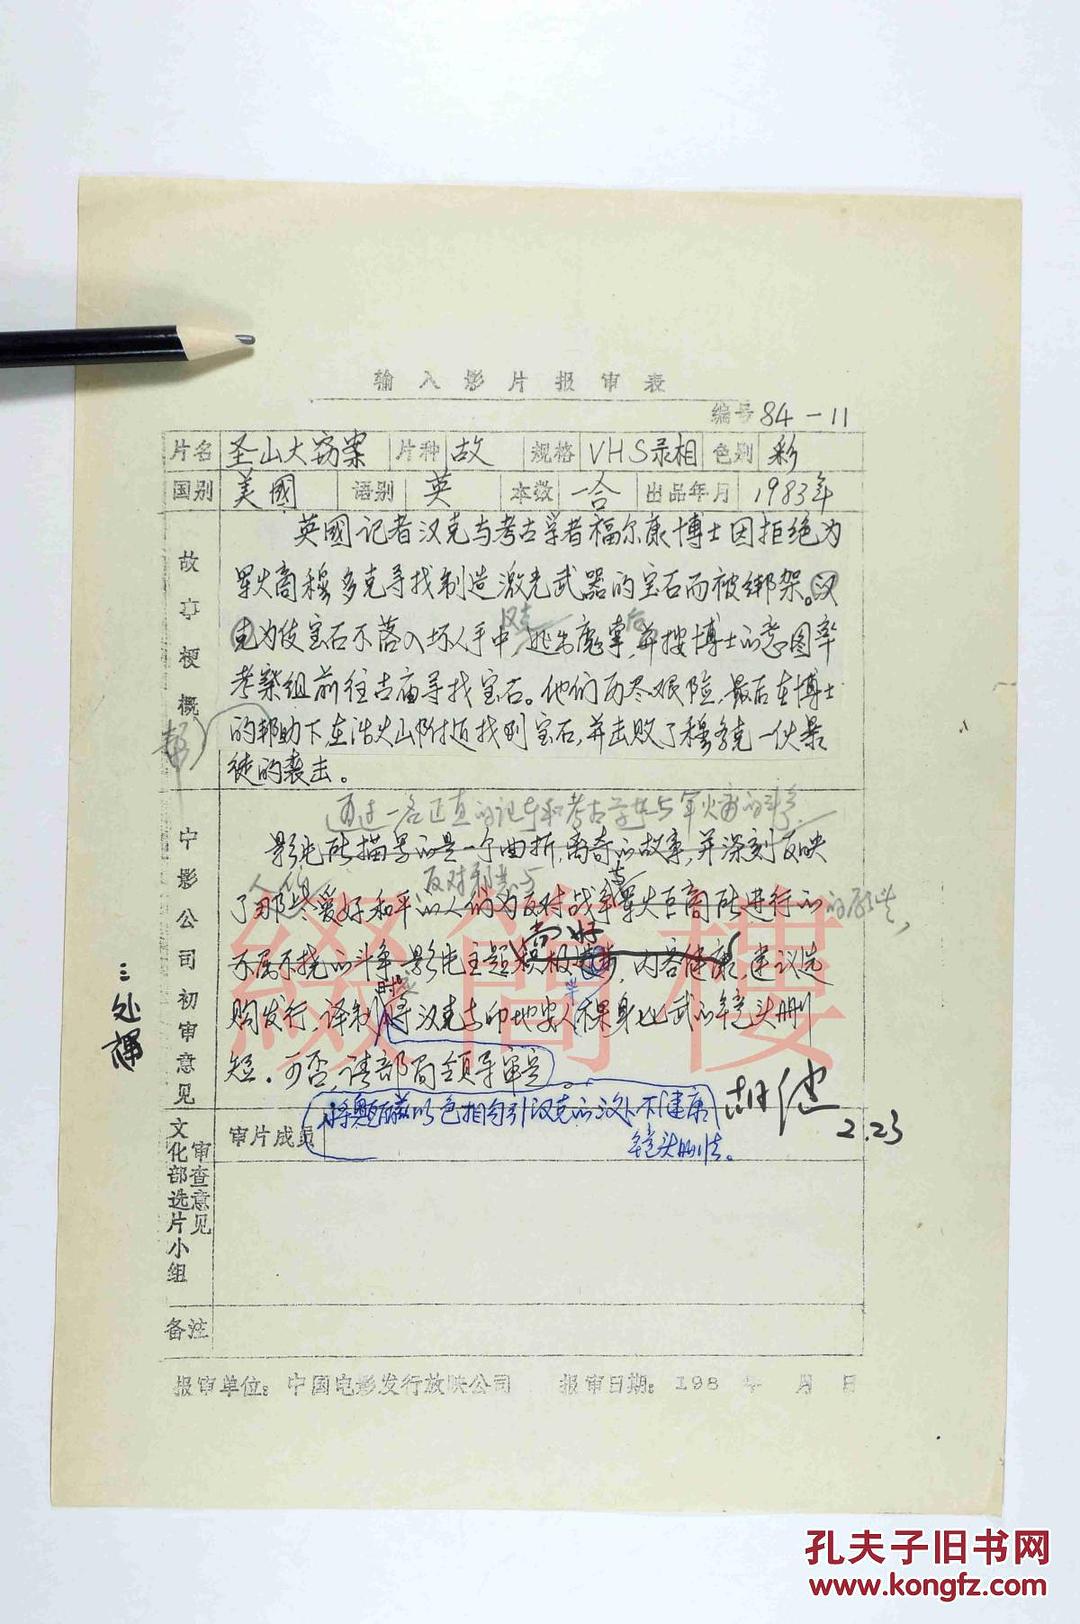 输入影片报审表
编号 84-11
片名 圣山大窃案 片种 故 规格 VHS录相 色别 彩
国别 美國 语别 英 本数 一合 出品年月 1983年
故事梗概
英國记者汉克与考古学者福尔康博士因拒绝为
军火商穆多克寻找制造激光武器的宝石而被绑架。汉
克为使宝石不落入坏人手中，逃出魔掌，并按博士的意图率
汉克 后
考察组前往古庙寻找宝石。他们历尽艰险，最后在博士
的帮助下，在活火山附近找到宝石，并击败了穆多克一伙暴
徒的袭击。
中影公司初审意见
通过一名正直的记者和考古学者与军火商的斗争
影片所描写的是一个曲折，离奇的故事，并深刻反映
人们 反对邪恶与
了那些爱好和平的人们为反对战争军火巨商所进行的
不屈不挠的斗争，影片主题积极进步，内容健康，建议选
尚好
购发行，译制时将汉克与印地安人裸身比武的镜头删
短。可否，请部局领导审定。
三处
胡健
2.23
色相勾引汉克的 不健康
镜头删去。
文化部选片小组审查意见
审片成员
备注
报审单位：中国电影发行放映公司 报审日期：198 年 月 日
缀简楼
孔夫子旧书网
www.kongfz.com